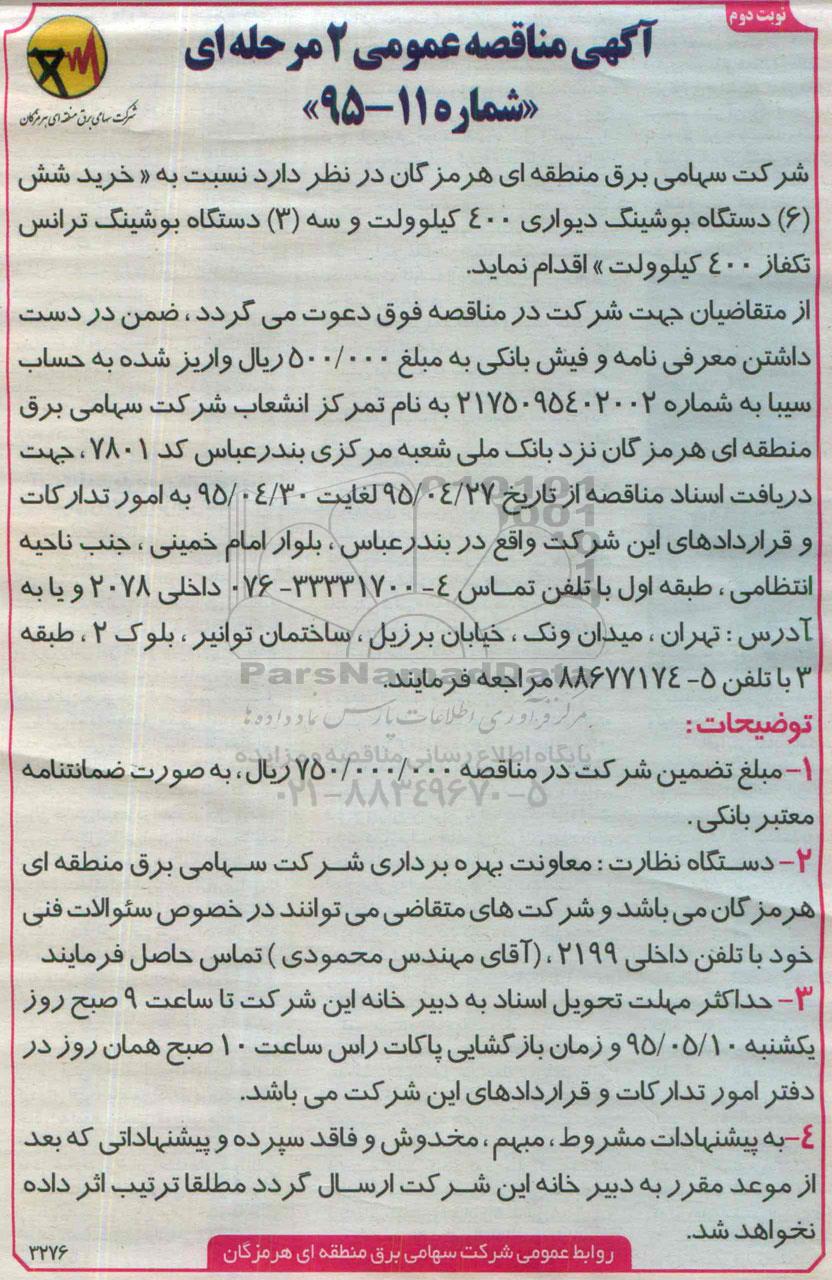 نوبت دوم
آگهی مناقصه عمومی ۲ مرحله ای
«شماره ۱۱-۹۵»
شرکت سهامی برق منطقه ای هرمزگان
شرکت سهامی برق منطقه ای هرمزگان در نظر دارد نسبت به « خرید شش
(۶) دستگاه بوشینگ دیواری ۴۰۰ کیلوولت و سه (۳) دستگاه بوشینگ ترانس
تکفاز ۴۰۰ کیلوولت » اقدام نماید.
از متقاضیان جهت شرکت در مناقصه فوق دعوت می گردد ، ضمن در دست
داشتن معرفی نامه و فیش بانکی به مبلغ ۵۰۰/۰۰۰ ریال واریز شده به حساب
سیبا به شماره ۲۱۷۵۰۹۵۴۰۲۰۰۲ به نام تمرکز انشعاب شرکت سهامی برق
منطقه ای هرمزگان نزد بانک ملی شعبه مرکزی بندرعباس کد ۷۸۰۱ ، جهت
دریافت اسناد مناقصه از تاریخ ۹۵/۰۴/۲۷ لغایت ۹۵/۰۴/۳۰ به امور تدارکات
و قراردادهای این شرکت واقع در بندرعباس ، بلوار امام خمینی ، جنب ناحیه
انتظامی ، طبقه اول با تلفن تماس ۴- ۳۳۳۳۱۷۰۰- ۰۷۶ داخلی ۲۰۷۸ و یا به
آدرس : تهران ، میدان ونک ، خیابان برزیل ، ساختمان توانیر ، بلوک ۲ ، طبقه
۳ با تلفن ۵- ۸۸۶۷۷۱۷۴ مراجعه فرمایند.
ParsNamadData
مرکز فرآوری اطلاعات پارس نماد داده ها
توضیحات :
پایگاه اطلاع رسانی مناقصه و مزایده
۱- مبلغ تضمین شرکت در مناقصه ۷۵۰/۰۰۰/۰۰۰ ریال ، به صورت ضمانتنامه
۰۲۱-۸۸۳۴۹۶۷۰-۵
معتبر بانکی .
۲- دستگاه نظارت : معاونت بهره برداری شرکت سهامی برق منطقه ای
هرمزگان می باشد و شرکت های متقاضی می توانند در خصوص سئوالات فنی
خود با تلفن داخلی ۲۱۹۹ ، (آقای مهندس محمودی ) تماس حاصل فرمایند
۳- حداکثر مهلت تحویل اسناد به دبیر خانه این شرکت تا ساعت ۹ صبح روز
یکشنبه ۹۵/۰۵/۱۰ و زمان بازگشایی پاکات راس ساعت ۱۰ صبح همان روز در
دفتر امور تدارکات و قراردادهای این شرکت می باشد.
۴-به پیشنهادات مشروط ، مبهم ، مخدوش و فاقد سپرده و پیشنهاداتی که بعد
از موعد مقرر به دبیر خانه این شرکت ارسال گردد مطلقا ترتیب اثر داده
نخواهد شد.
روابط عمومی شرکت سهامی برق منطقه ای هرمزگان
۳۲۷۶